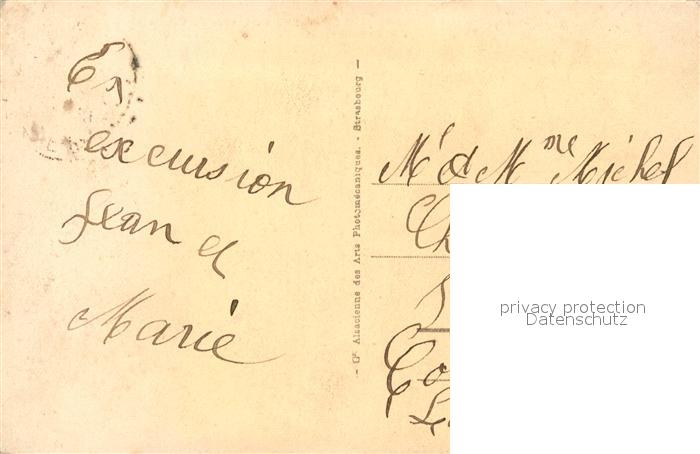 En
excursion
Jean et
Marie
- Cie Alsacienne des Arts Photomécaniques. - Strasbourg -
Mr & Mme Michel
privacy protection
Datenschutz